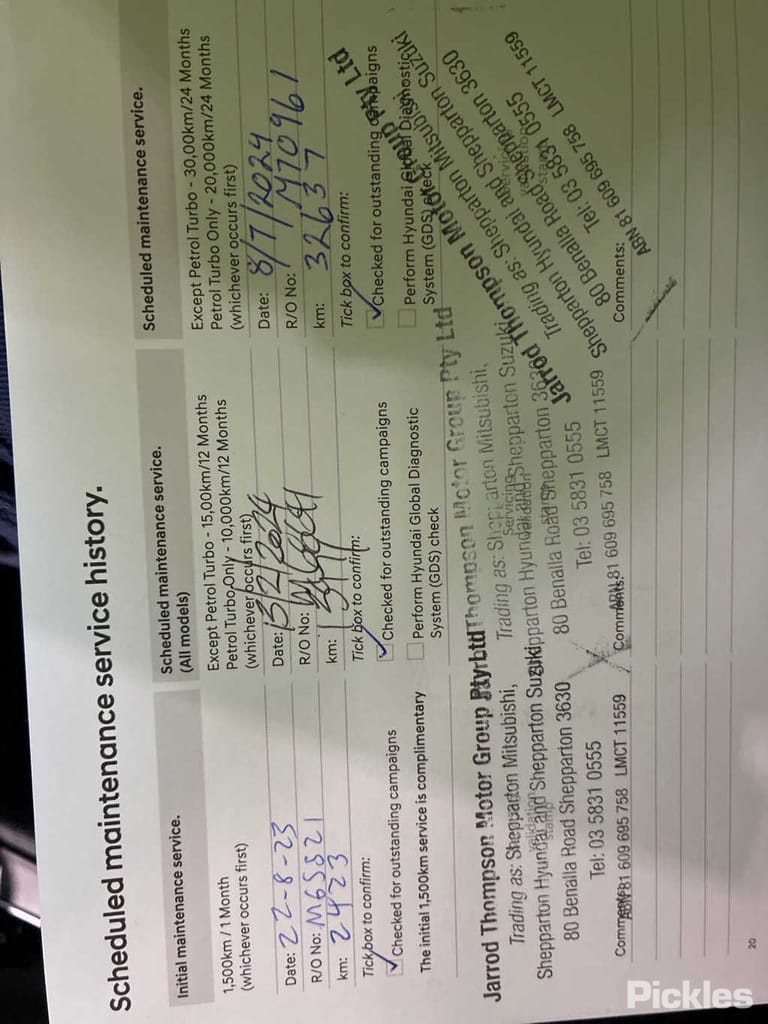 Scheduled maintenance service history.
Initial maintenance service.
1,500km / 1 Month
(whichever occurs first)
Date: 22-8-23
R/O No: M65521
km: 2423
Tick box to confirm:
Checked for outstanding campaigns
The initial 1,500km service is complimentary
Jarrod Thompson Motor Group Pty Ltd
Trading as: Shepparton Mitsubishi,
Shepparton Hyundai and Shepparton Suzuki
validation
stamp
80 Benalla Road Shepparton 3630
Tel: 03 5831 0555
Comments:
ABN 81 609 695 758 LMCT 11559
Scheduled maintenance service.
(All models)
Except Petrol Turbo - 15,00km/12 Months
Petrol Turbo Only - 10,000km/12 Months
(whichever occurs first)
Date: 13/2/2024
R/O No:
km:
Tick box to confirm:
Checked for outstanding campaigns
Perform Hyundai Global Diagnostic
System (GDS) check
Thompson Motor Group Pty Ltd
Trading as: Shepparton Mitsubishi,
Servicing
Shepparton Hyundai and Shepparton Suzuki
validation
stamp
80 Benalla Road Shepparton 3630
Tel: 03 5831 0555
Comments:
ABN 81 609 695 758 LMCT 11559
Scheduled maintenance service.
Except Petrol Turbo - 30,00km/24 Months
Petrol Turbo Only - 20,000km/24 Months
(whichever occurs first)
Date: 8/7/2024
R/O No: M70961
km: 32637
Tick box to confirm:
Checked for outstanding campaigns
Perform Hyundai Global Diagnostic
System (GDS) check
Jarrod Thompson Motor Group Pty Ltd
Trading as: Shepparton Mitsubishi
Shepparton Hyundai and Shepparton Suzuki
Servicing
validation
stamp
80 Benalla Road Shepparton 3630
Tel: 03 5831 0555
Comments:
ABN 81 609 695 758 LMCT 11559
20
Pickles